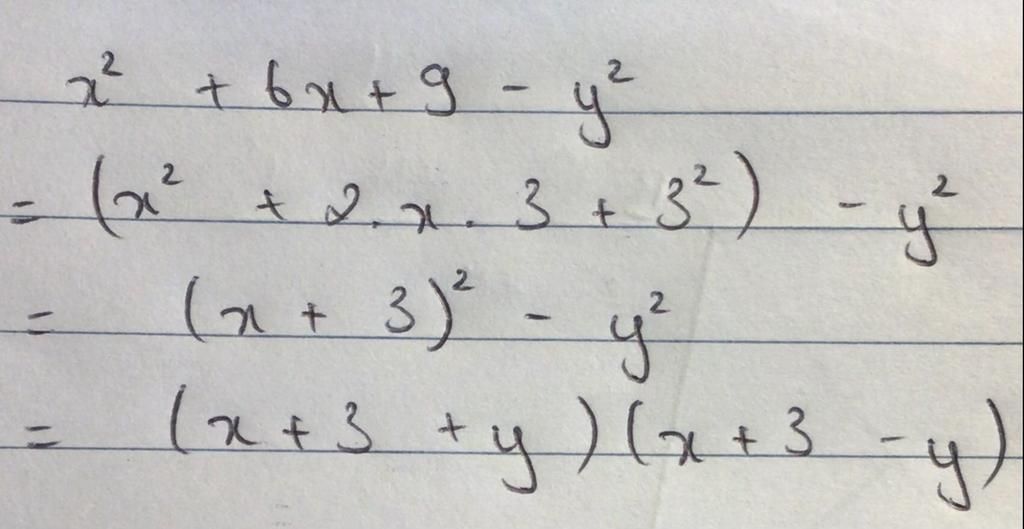 x² + 6x + 9 - y²
= (x² + 2.x.3 + 3²) - y²
= (x + 3)² - y²
= (x + 3 + y)(x + 3 - y)